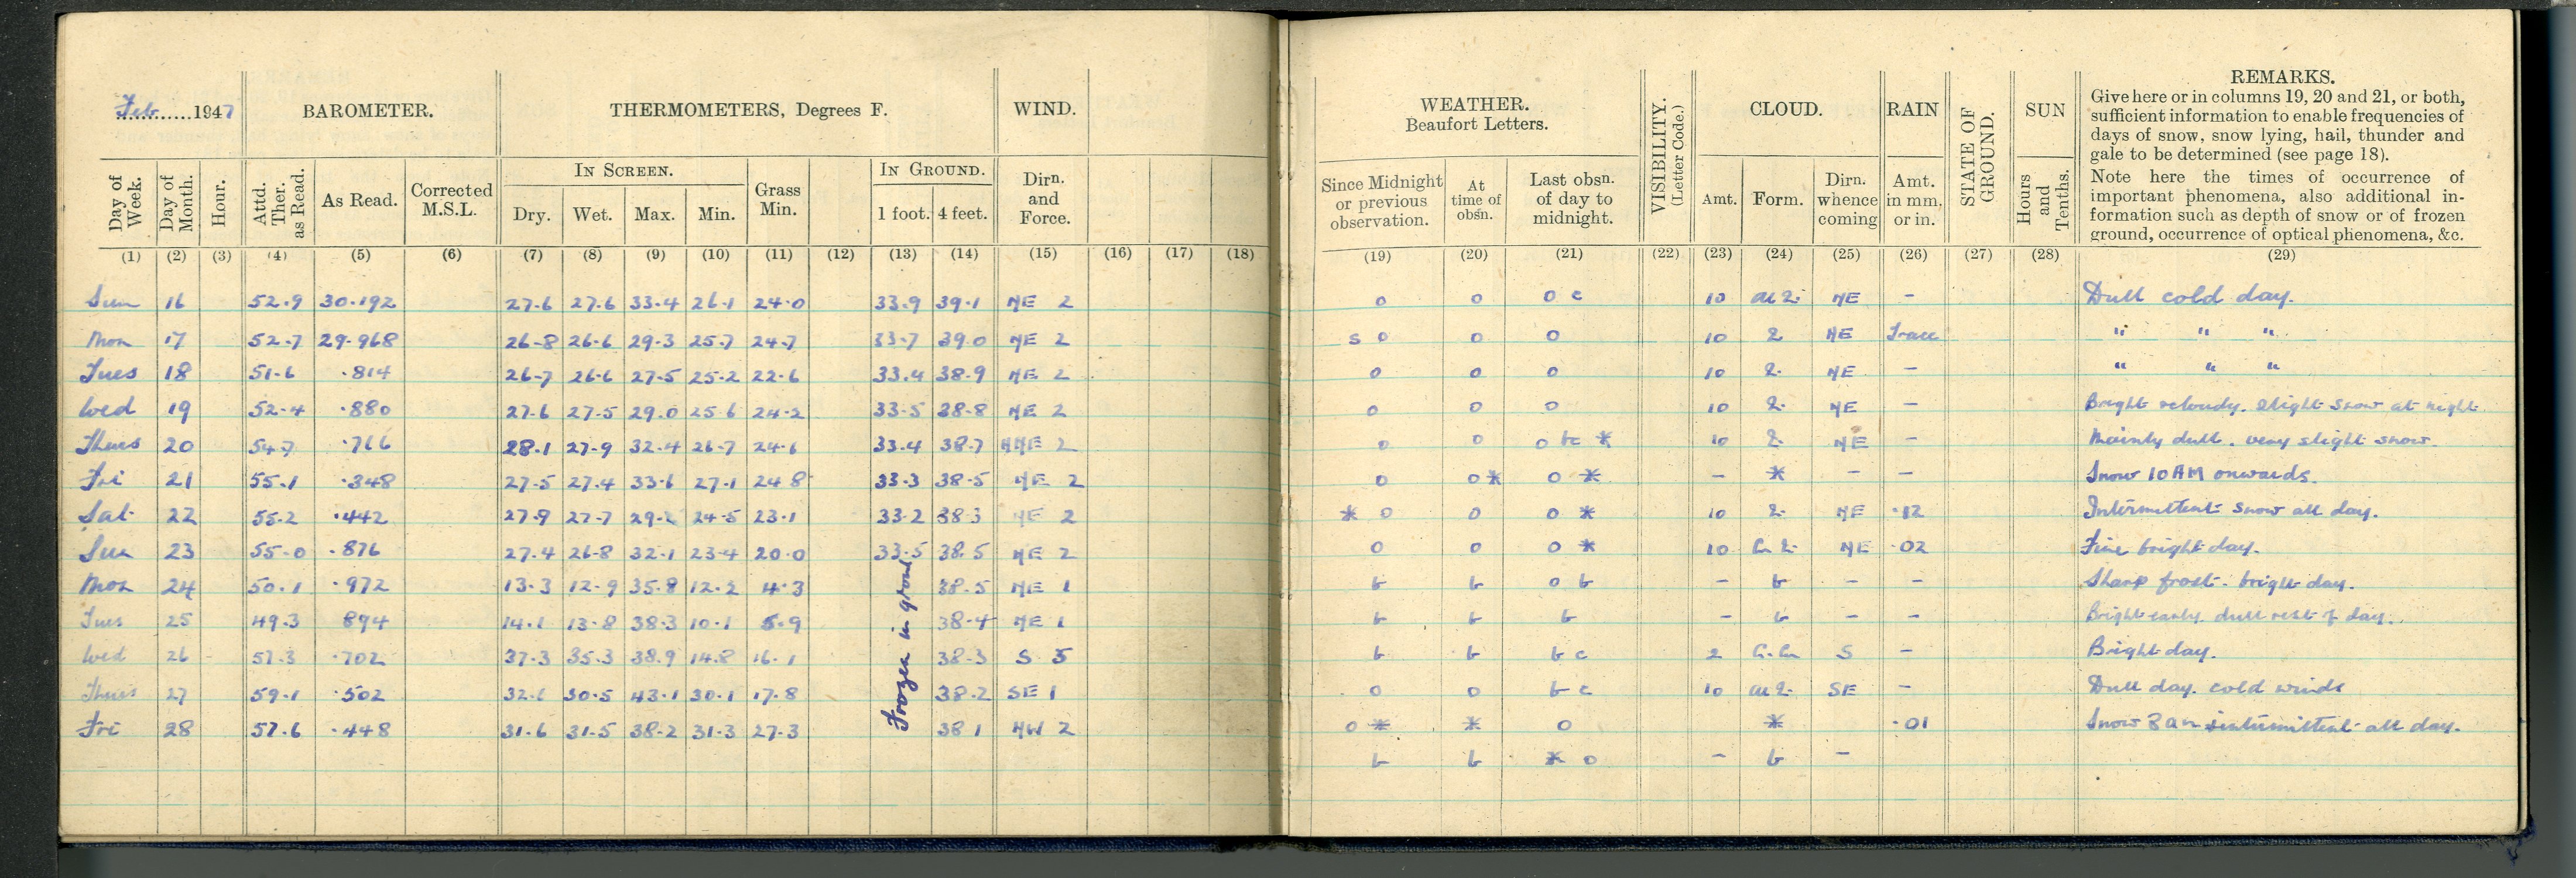 Feb 1947 BAROMETER. THERMOMETERS, Degrees F. WIND.
Day of Week. Day of Month. Hour. Attd. Ther. as Read. As Read. Corrected M.S.L. IN SCREEN. Dry. Wet. Max. Min. Grass Min. IN GROUND. 1 foot. 4 feet. Dirn. and Force.
(1) (2) (3) (4) (5) (6) (7) (8) (9) (10) (11) (12) (13) (14) (15) (16) (17) (18)
Sun 16 52.9 30.192 27.6 27.6 33.4 26.1 24.0 33.9 39.1 NE 2
Mon 17 52.7 29.968 26.8 26.6 29.3 25.7 24.7 33.7 39.0 NE 2
Tues 18 51.6 .814 26.7 26.6 27.5 25.2 22.6 33.4 38.9 NE 2
Wed 19 52.4 .880 27.6 27.5 29.0 25.6 24.2 33.5 38.8 NE 2
Thurs 20 54.7 .766 28.1 27.9 32.4 26.7 24.6 33.4 38.7 NNE 2
Fri 21 55.1 .348 27.5 27.4 33.6 27.1 24.8 33.3 38.5 NE 2
Sat 22 55.2 .442 27.9 27.7 24.5 23.1 33.2 38.3 NE 2
Sun 23 55.0 .876 27.4 26.8 32.1 23.4 20.0 33.5 38.5 NE 2
Mon 24 50.1 .972 13.3 12.9 35.8 12.2 4.3 38.5 NE 1
Tues 25 49.3 894 14.1 13.8 38.3 10.1 5.9 38.4 NE 1
Wed 26 57.3 .702 37.3 35.3 38.9 14.8 16.1 38.3 S 5
Thurs 27 59.1 .502 32.6 30.5 43.1 30.1 17.8 38.2 SE 1
Fri 28 57.6 .448 31.6 31.5 38.2 31.3 27.3 38.1 NW 2
Frozen in ground
WEATHER. Beaufort Letters. VISIBILITY. (Letter Code.) CLOUD. RAIN STATE OF GROUND. SUN REMARKS.
Give here or in columns 19, 20 and 21, or both,
sufficient information to enable frequencies of
days of snow, snow lying, hail, thunder and
gale to be determined (see page 18).
Note here the times of occurrence of
important phenomena, also additional in-
formation such as depth of snow or of frozen
ground, occurrence of optical phenomena, &c.
Since Midnight or previous observation. At time of obsn. Last obsn. of day to midnight. Amt. Form. Dirn. whence coming Amt. in mm. or in. Hours and Tenths.
(19) (20) (21) (22) (23) (24) (25) (26) (27) (28) (29)
o o o c 10 NE - Dull cold day.
s o o o 10 NE Trace " " "
o o o 10 NE - " " "
o o o 10 NE - Bright slight snow at night
o o o bc * 10 NE - Mainly dull. very slight snow.
o o * o * - * - - Snow 10 AM onwards.
* o o o * 10 NE .12 Intermittent snow all day.
o o o * 10 NE .02 Fine bright day.
b b o b - b - - Sharp frost. bright day.
b b b - b - - Bright early. dull rest of day.
b b b c 2 S - Bright day.
o o b c 10 SE - Dull day. cold winds
o * * o * .01 Snow 8 am intermittent all day.
b b * o - b -